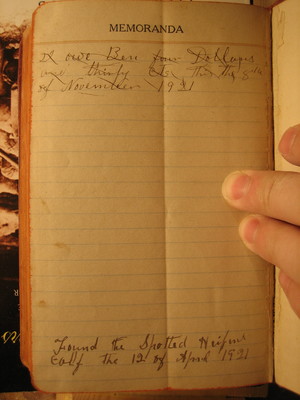 MEMORANDA
I owe Ben four Dollars
and thirty cts this the
of November 1921
Found the Spotted Heifers
calf the 12 of April 1921